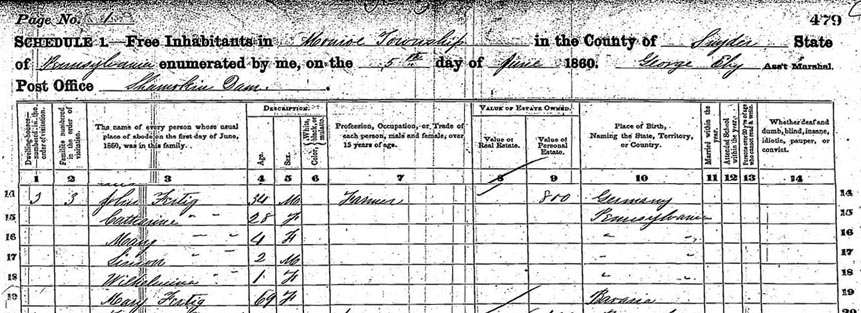 Page No. 1 479
SCHEDULE 1.—Free Inhabitants in Monroe Township in the County of Snyder State
of Pennsylvania enumerated by me, on the 5th day of June 1860. George Eby Ass't Marshal.
Post Office Shamokin Dam
Dwelling-houses—numbered in the order of visitation.
Families numbered in the order of visitation.
The name of every person whose usual place of abode on the first day of June, 1860, was in this family.
DESCRIPTION.
Age.
Sex.
Color, White, black, or mulatto.
Profession, Occupation, or Trade of each person, male and female, over 15 years of age.
VALUE OF ESTATE OWNED.
Value of Real Estate.
Value of Personal Estate.
Place of Birth, Naming the State, Territory, or Country.
Married within the year.
Attended School within the year.
Whether deaf and dumb, blind, insane, idiotic, pauper, or convict.
1 2 3 4 5 6 7 8 9 10 11 12 13 14
14 3 3 John Fertig 34 M Farmer 800 Germany 14
15 Catherine " " 28 F Pennsylvania 15
16 Mary " " 4 F " " 16
17 Simon " " 2 M " " 17
18 Wilhelmina " 1 F " " 18
19 Mary Fertig 69 F Bavaria 19